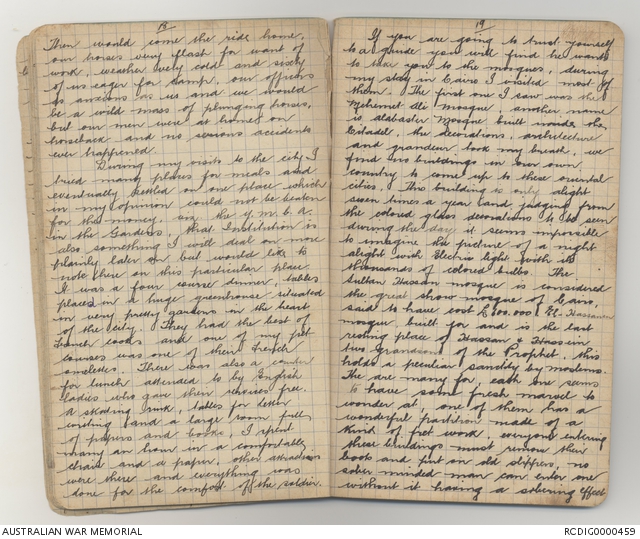 18
Then would come the ride home,
our horses very flash for want of
work, weather very cold and sixty
of us eager for camp, our officers
as anxious as us and we would
be a wild mass of plunging horses,
but our men were at home on
horseback and no serious accidents
ever happened.
During my visits to the city I
tried many places for meals and
eventually settled on one place which
in my opinion could not be beaten
for the money, viz the Y.M.C.A.
in the Gardens, that Institution is
also something I will deal on more
plainly later on but would like to
note here on this particular place.
It was a four course dinner, tables
placed in a huge greenhouse situated
in very pretty gardens in the heart
of the city. They had the best of
French cooks and one of my pet
courses was one of their French
omelettes. There was also a counter
for lunch attended to by English
ladies who gave their services free.
A skating rink, tables for letter
writing and a large room full
of papers and books, I spent
many an hour in a comfortable
chair and a paper, other attractions
were there and everything was
done for the comfort of the soldier.
19
If you are going to trust yourself
to a guide you will find he wants
to take you to the mosques, during
my stay in Cairo I visited most of
them. The first one I saw was the
Mehemet Ali Mosque, another name
is alabaster Mosque built inside the
Citadel, the decorations, architecture
and grandeur took my breath, we
find no buildings in our own
country to come up to these oriental
cities. This building is only alight
seven times a year and judging from
the colored glass decorations to be seen
during the day it seems impossible
to imagine the picture of a night
alight with Electric light with its
thousands of colored bulbs. The
Sultan Hassan mosque is considered
the great show mosque of Cairo,
said to have cost £600.000. El. Hassaneen
mosque, built for and is the last
resting place of Hassan & Hussein
two Grandsons of the Prophet, this
holds a peculiar sanctity by moslems.
The are many for each one seems
to have some fresh marvel to
wonder at, one of them has a
wonderful partition made of a
kind of fret work, everyone entering
these buildings must remove their
boots and put on old slippers, no
sober minded man can enter one
without it having a sobering effect
AUSTRALIAN WAR MEMORIAL
RCDIG0000459